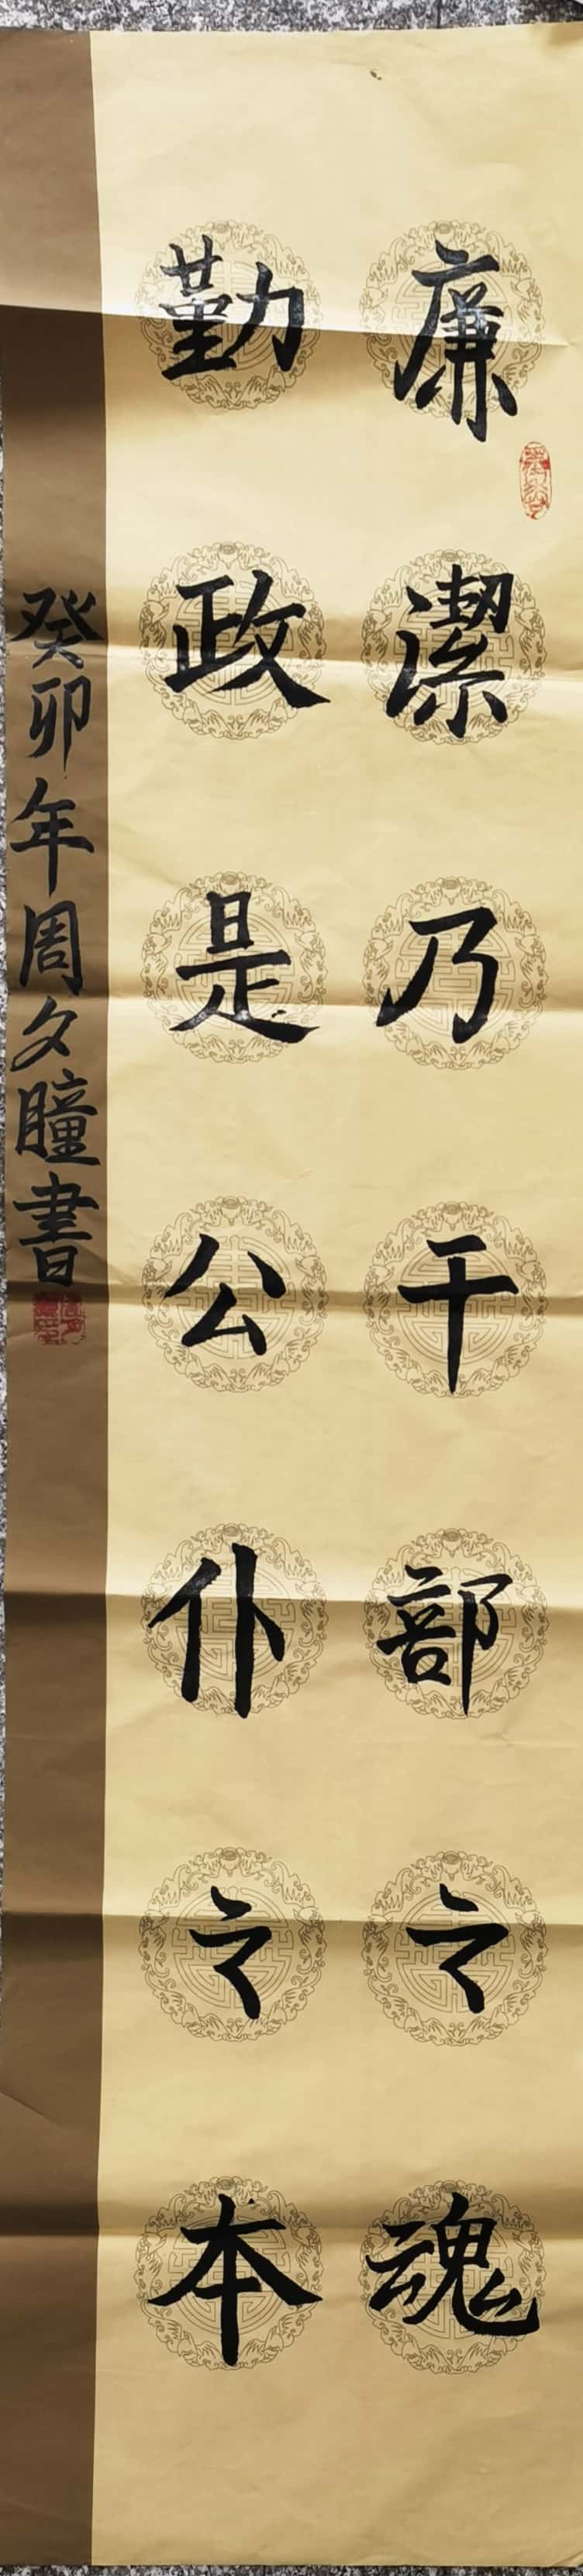 廉潔乃干部之魂
勤政是公仆之本
癸卯年周文瞳書